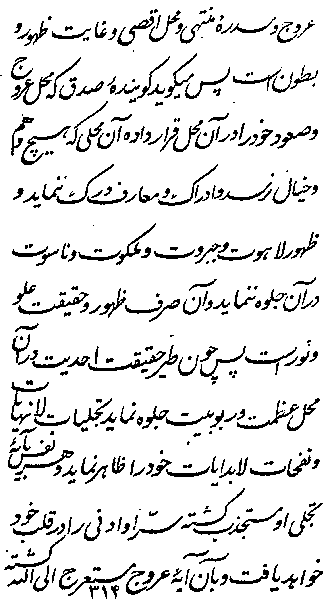 عروج و سدرهٔ منتهی و محل اقصی و غایت ظهور و
بطون است پس میگوید گویندهٔ صدق که محل عروج
و صعود خود را در آن محل قرار داده آن محلی که هیچ وهم
و خیال نرسد و ادراک و معارف درک ننماید و
ظهور لاهوت و جبروت و ملکوت و ناسوت
در آن جلوه ننماید و آن صرف ظهور و حقیقت علو
و نور است پس چون طیر حقیقت احدیت در آن
محل عظمت و ربوبیت جلوه نماید تجلیات لانهایات
و نفحات لابدایات خود را ظاهر نماید و هر نفس بآیهٔ
تجلی او مستجذب گشته سرّ او ادنی را در قلب خود
خواهد یافت و بآن آیهٔ عروج مستعرج الی الله گشته
۳۱۴